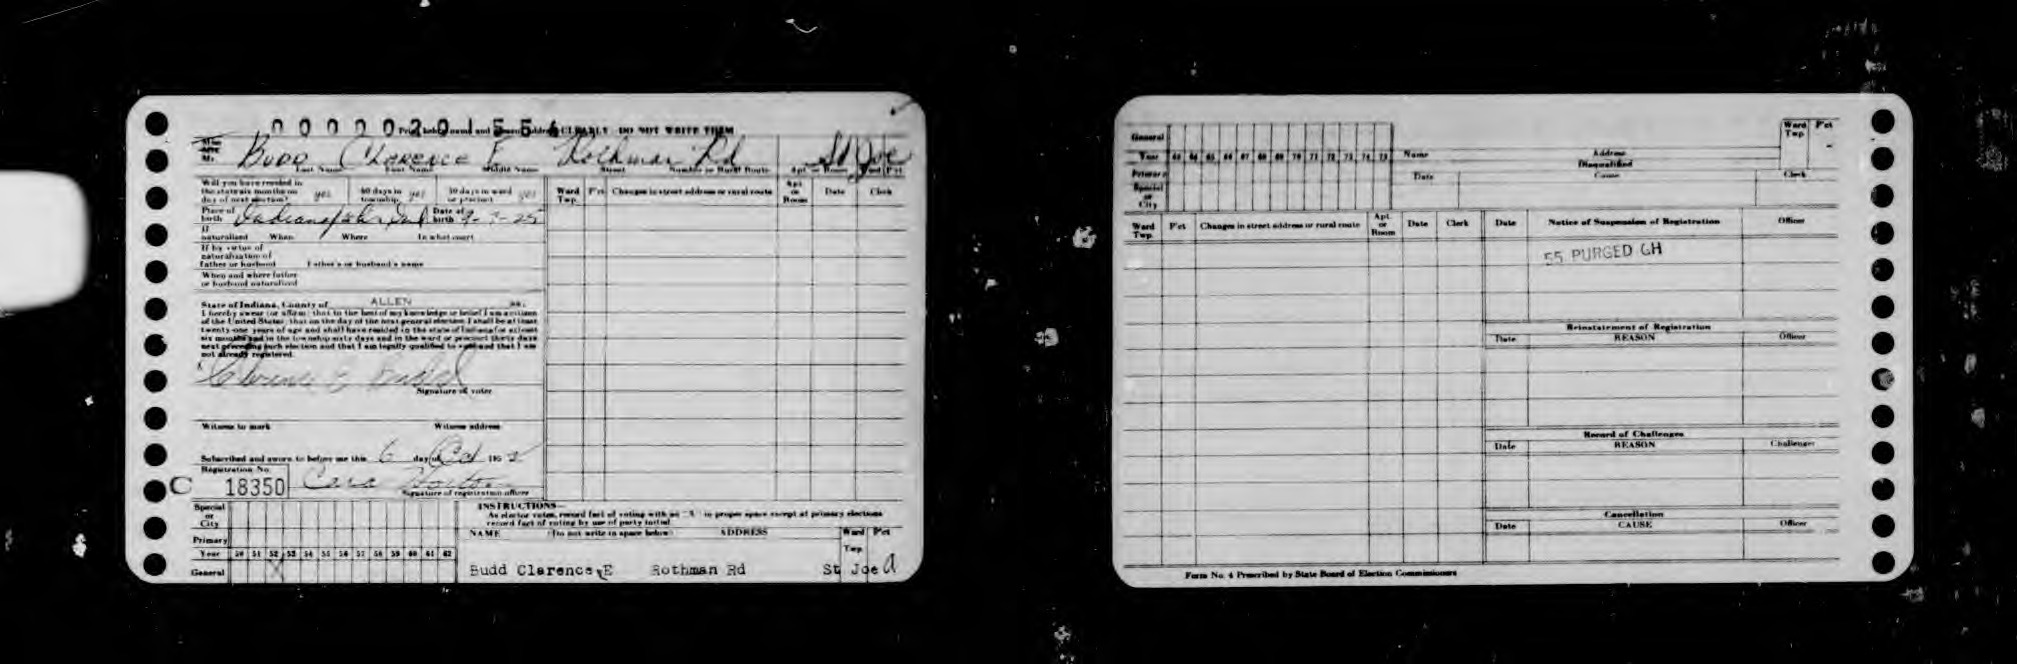 Print below name and address CLEARLY DO NOT WRITE THEM
Miss
Mrs.
Mr. BUDD CLARENCE E. Rothman Rd St Joe
Last Name First Name Middle Name Street Number or Rural Route Apt. or Room Ward P'ct
Will you have resided in the state six months on day of next election? yes 60 days in township yes 30 days in ward or precinct yes
Place of birth Indianapolis, Ind Date of birth
If naturalized When Where In what court
If by virtue of naturalization of father or husband Father's or husband's name
When and where father or husband naturalized
State of Indiana, County of ALLEN ss.
I hereby swear (or affirm) that to the best of my knowledge or belief I am a citizen
of the United States; that on the day of the next general election I shall be at least
twenty-one years of age and shall have resided in the state of Indiana for at least
six months and in the township sixty days and in the ward or precinct thirty days
next preceding such election and that I am legally qualified to vote and that I am
not already registered.
Clarence E Budd
Signature of voter
Witness to mark Witness address
Subscribed and sworn to before me this 6 day of Oct 1952
Registration No.
C 18350 Cora
Signature of registration officer
Ward Twp. P'ct Changes in street address or rural route Apt. or Room Date Clerk
Special or City
Primary
Year 50 51 52 53 54 55 56 57 58 59 60 61 62
General X
INSTRUCTIONS—
As elector votes, record fact of voting with an "X" in proper space except at primary elections
record fact of voting by use of party initial
NAME (Do not write in space below) ADDRESS Ward Twp. P'ct
Budd Clarence E Rothman Rd St Joe A
General
Year 63 64 65 66 67 68 69 70 71 72 73 74 75
Primary
Special or City
Name Address Ward Twp P'ct
Disqualified
Date Cause Clerk
Ward Twp. P'ct Changes in street address or rural route Apt. or Room Date Clerk
Date Notice of Suspension of Registration Officer
55 PURGED GH
Reinstatement of Registration
Date REASON Officer
Record of Challenges
Date REASON Challenger
Cancellation
Date CAUSE Officer
Form No. 4 Prescribed by State Board of Election Commissioners